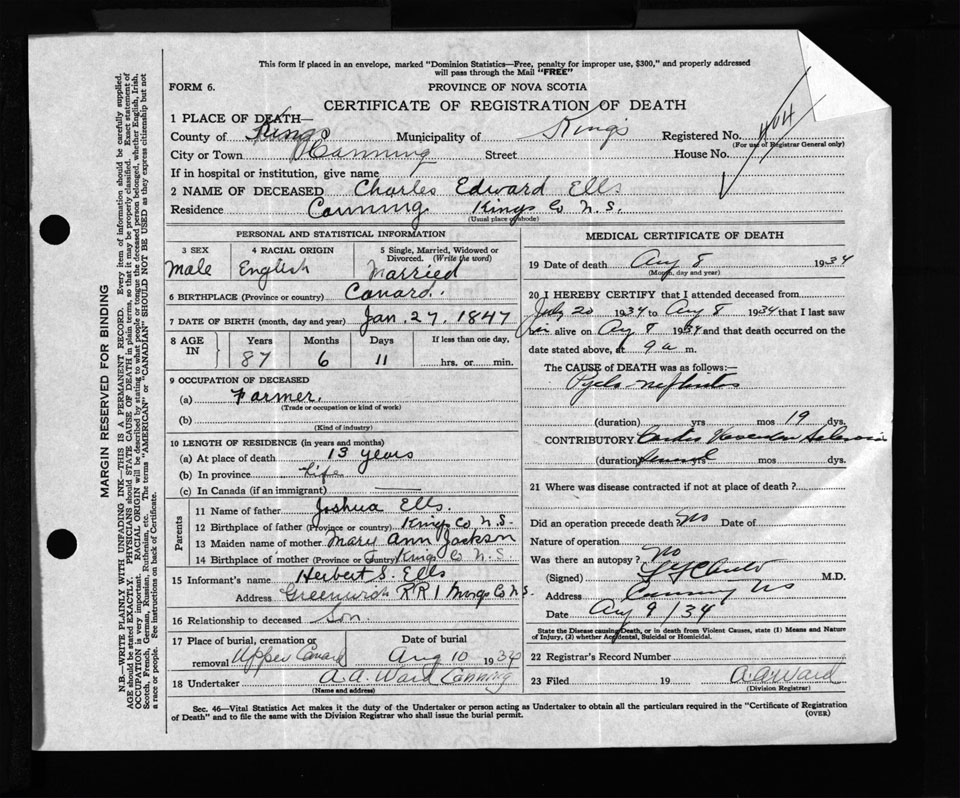 This form if placed in an envelope, marked "Dominion Statistics—Free, penalty for improper use, $300," and properly addressed
will pass through the Mail "FREE"
FORM 6.
PROVINCE OF NOVA SCOTIA
CERTIFICATE OF REGISTRATION OF DEATH
1 PLACE OF DEATH—
County of Kings Municipality of Kings Registered No. 404
(For use of Registrar General only)
City or Town Canning Street House No.
If in hospital or institution, give name
2 NAME OF DECEASED Charles Edward Ells
Residence Canning Kings Co N.S.
(Usual place of abode)
PERSONAL AND STATISTICAL INFORMATION
3 SEX 4 RACIAL ORIGIN 5 Single, Married, Widowed or
Divorced. (Write the word)
Male English Married
6 BIRTHPLACE (Province or country) Canard.
7 DATE OF BIRTH (month, day and year) Jan. 27, 1847
8 AGE IN Years Months Days If less than one day,
87 6 11 hrs. or min.
9 OCCUPATION OF DECEASED
(a) Farmer.
(Trade or occupation or kind of work)
(b)
(Kind of industry)
10 LENGTH OF RESIDENCE (in years and months)
(a) At place of death 13 years
(b) In province Life
(c) In Canada (if an immigrant)
Parents
11 Name of father Joshua Ells.
12 Birthplace of father (Province or country) Kings Co N.S.
13 Maiden name of mother Mary Ann Jackson
14 Birthplace of mother (Province or Kings Co N.S.
15 Informant's name Herbert S. Ells
Address Greenwich RR1 Kings Co N.S.
16 Relationship to deceased Son.
17 Place of burial, cremation or Date of burial
removal Upper Canard Aug 10 1934
18 Undertaker A. A. Ward Canning
(Name and address)
MEDICAL CERTIFICATE OF DEATH
19 Date of death Aug 8 1934
(Month, day and year)
20 I HEREBY CERTIFY that I attended deceased from
July 20 1934 to Aug 8 1934 that I last saw
him alive on Aug 8 1934 and that death occurred on
date stated above, at 9 a m.
The CAUSE of DEATH was as follows:—
Pyelo-nephritis
(duration) yrs mos 19 dys.
CONTRIBUTORY
(duration) yrs mos dys.
21 Where was disease contracted if not at place of death?
Did an operation precede death No Date of
Nature of operation
Was there an autopsy? No
(Signed) M.D.
Address Canning NS
Date Aug 9/34
State the Disease causing Death, or in death from Violent Causes, state (1) Means and Nature
of Injury, (2) whether Accidental, Suicidal or Homicidal.
22 Registrar's Record Number
23 Filed 19 A. A. Ward
(Division Registrar)
Sec. 46—Vital Statistics Act makes it the duty of the Undertaker or person acting as Undertaker to obtain all the particulars required in the "Certificate of Registration
of Death" and to file the same with the Division Registrar who shall issue the burial permit. (OVER)
MARGIN RESERVED FOR BINDING
N.B.—WRITE PLAINLY WITH UNFADING INK—THIS IS A PERMANENT RECORD. Every item of information should be carefully supplied.
AGE should be stated EXACTLY. PHYSICIANS should STATE CAUSE OF DEATH in plain terms, so that it may be properly classified. Exact statement of
OCCUPATION is very important. RACIAL ORIGIN will be described by stating to what people or tongue the deceased person belonged, whether English, Irish,
Scotch, French, German, Russian, Ruthenian, etc. The terms "AMERICAN" or "CANADIAN" SHOULD NOT BE USED as they express citizenship but not
a race or people. See instructions on back of Certificate.